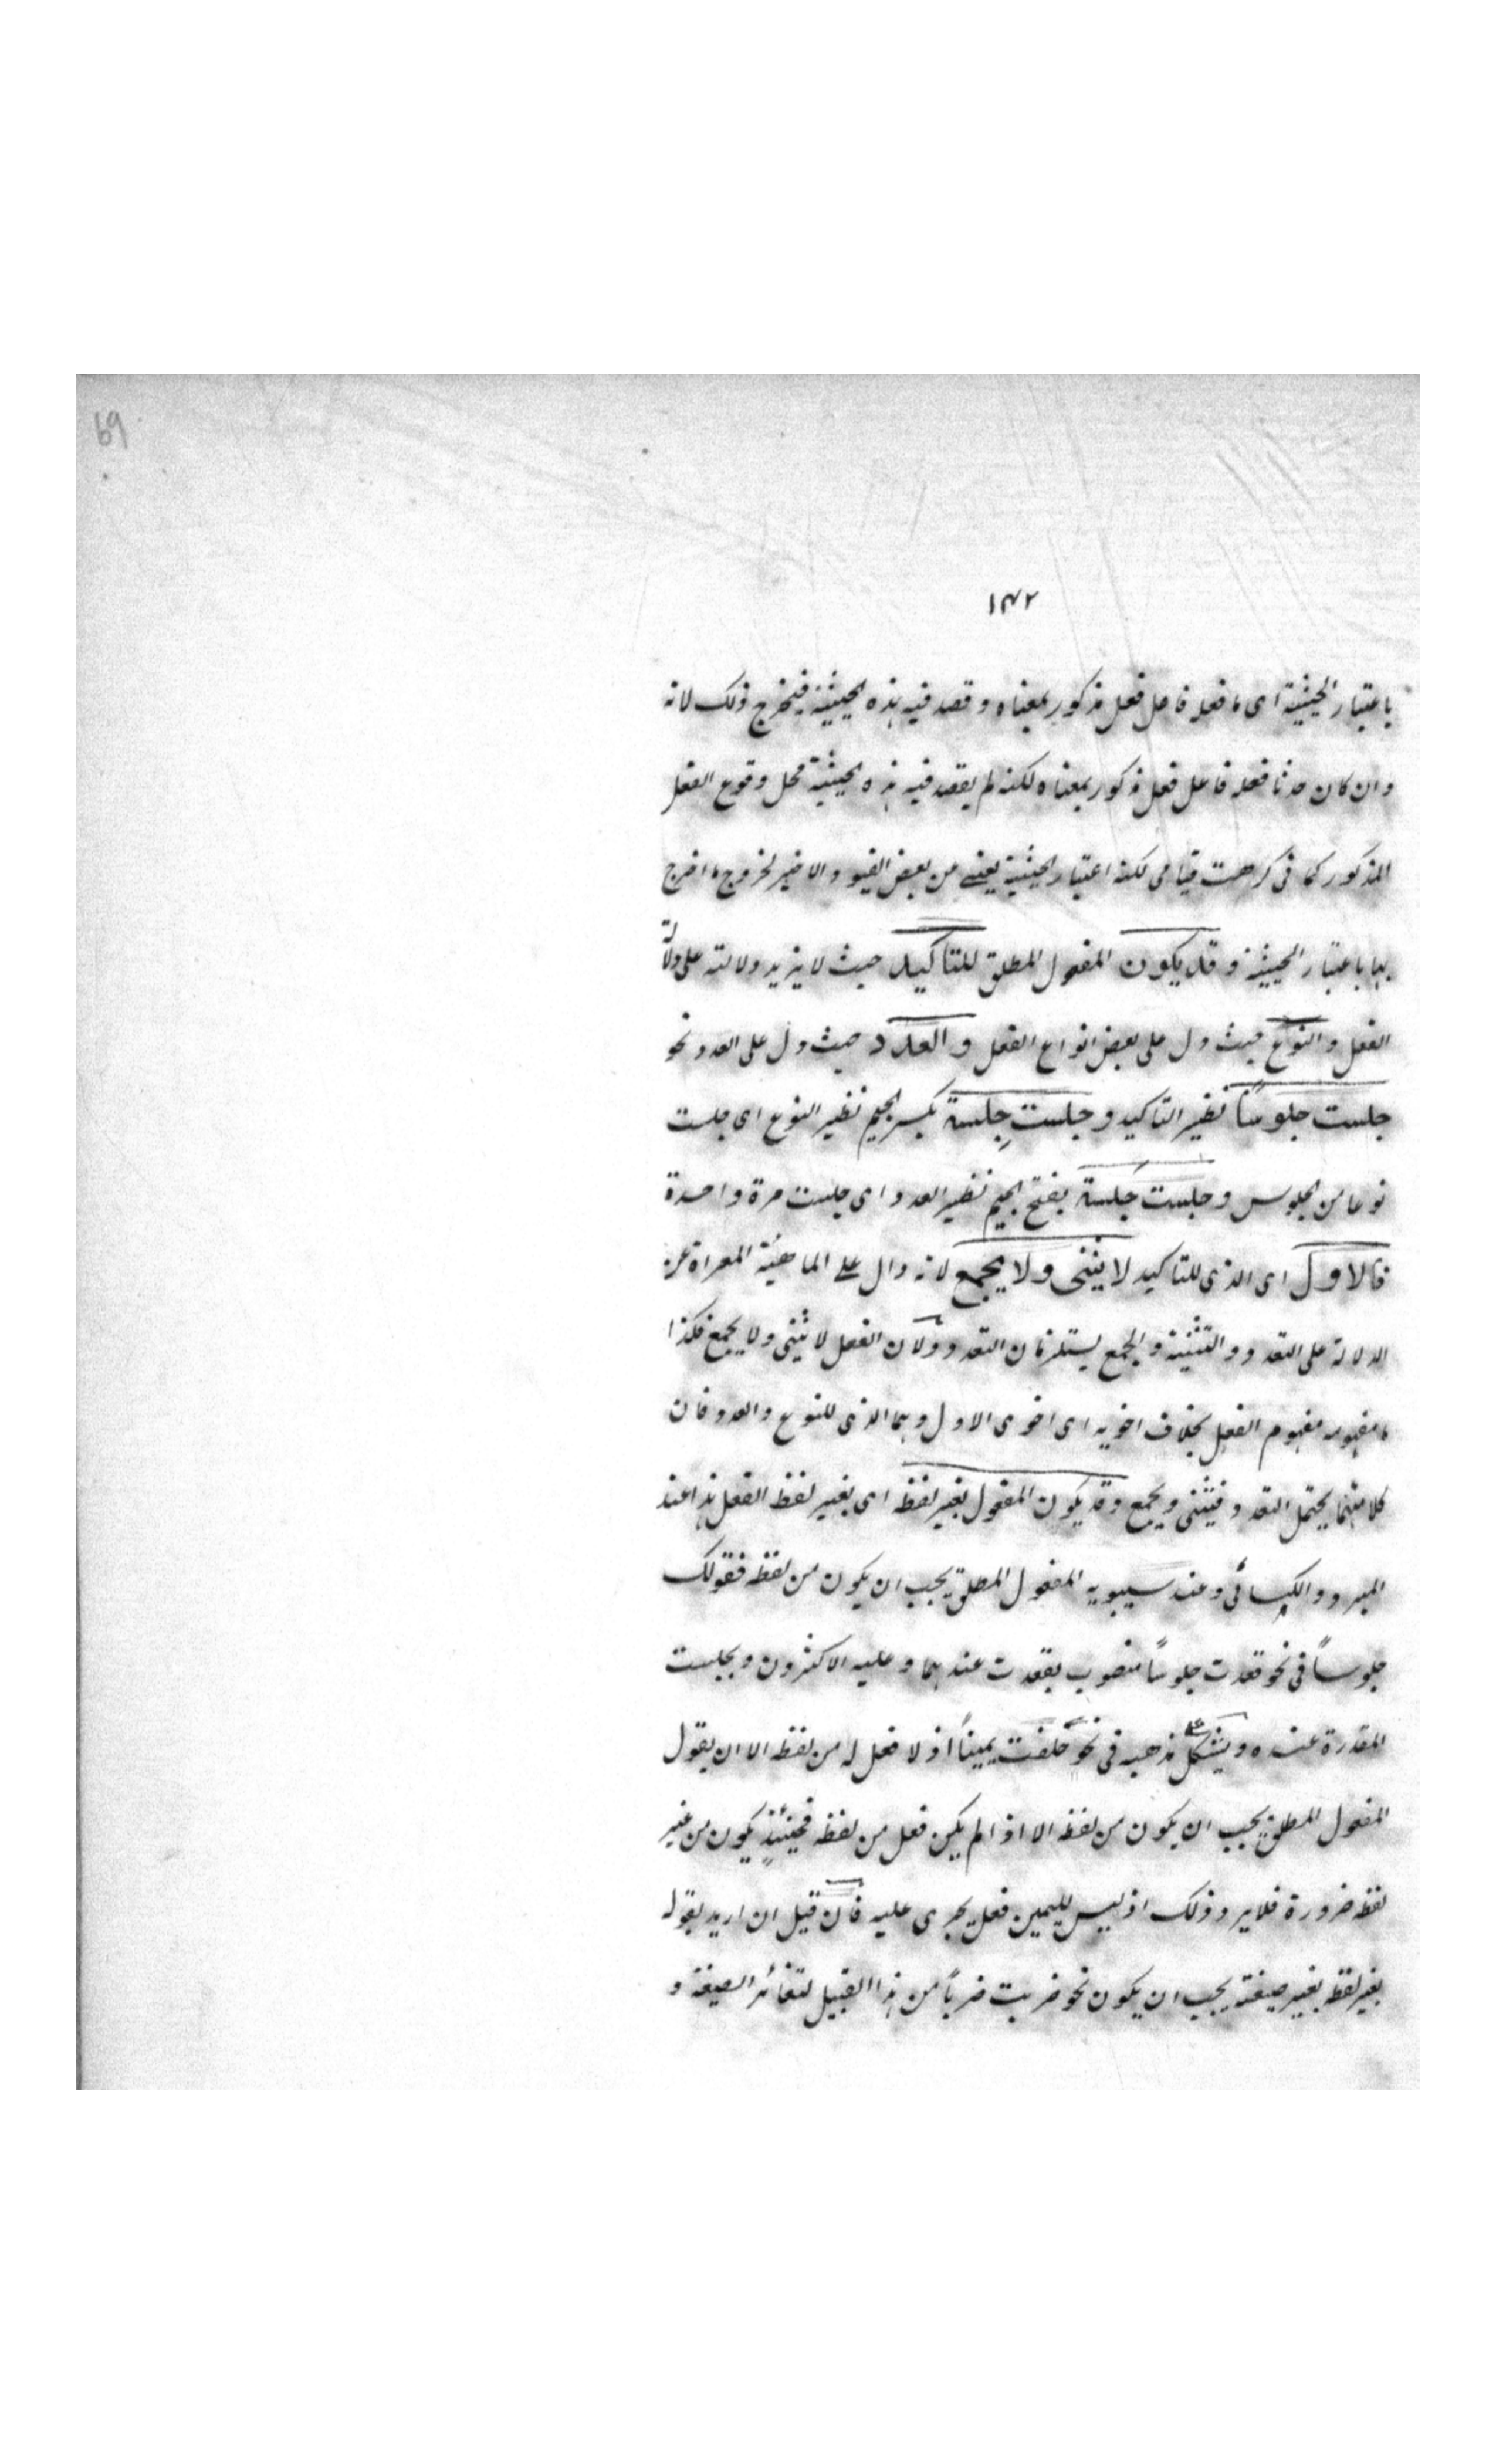 69
۱۴۲
باعتبار الحيثية اى ما فعله فاعل فعل مذكور بمعناه وقصد فيه هذه الحيثية فيخرج ذلك لانه
وان كان حدثا فعله فاعل فعل مذكور بمعناه لكنه لم يقصد فيه هذه الحيثية محل وقوع الفعل
المذكور كما فى كرهت قيامى لكنه اعتبار الحيثية يغنى من بعض القيود الاخير لخروج ما اخرج
بها باعتبار الحيثية وقد يكون المفعول المطلق للتاكيد حيث لا يزيد دلالته على دلالة
الفعل والنوع حيث دل على بعض انواع الفعل والعدد حيث دل على العدد نحو
جلست جلوسًا نظير التاكيد وجلست جِلسة بكسر الجيم نظير النوع اى جلست
نوعا من الجلوس وجلست جَلسة بفتح الجيم نظير العدد اى جلست مرة واحدة
فالاول اى الذى للتاكيد لا يثنى ولا يجمع لانه دال على الماهية المعراة عن
الدلالة على التعدد والتثنية والجمع يستلزمان التعدد ولان الفعل لا يثنى ولا يجمع فكذا
ما مفهومه مفهوم الفعل بخلاف اخويه اى اخوى الاول وهما الذى للنوع والعدد فان
كلا منهما يحتمل التعدد فيثنى ويجمع وقد يكون المفعول بغير لفظه اى بغير لفظ الفعل هذا عند
المبرد والكسائى وعند سيبويه المفعول المطلق يجب ان يكون من لفظه فقولك
جلوساً فى نحو قعدت جلوسًا منصوب بقعدت عندهما وعليه الاكثرون وبجلست
المقدرة عنده ويشكل على مذهبه فى نحو حلفت يمينًا اذ لا فعل له من لفظه الا ان يقول
المفعول المطلق يجب ان يكون من لفظه الا اذا لم يكن فعل من لفظه فحينئذٍ يكون من غير
لفظه ضرورة فلا يرد ذلك اذ ليس لليمين فعل يجرى عليه فان قيل ان اريد بقوله
بغير لفظه بغير صيغته يجب ان يكون نحو ضربت ضربًا من هذا القبيل لتغائر الصيغة و